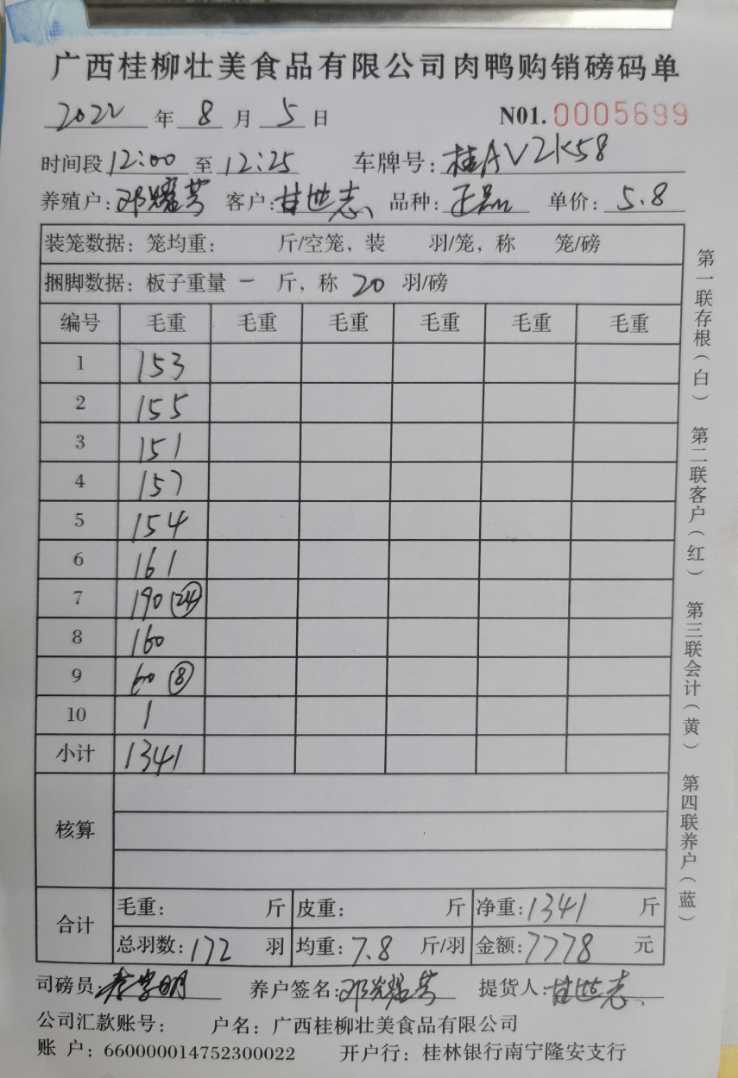 广西桂柳壮美食品有限公司肉鸭购销磅码单
2022 年 8 月 5 日 N01. 0005699
时间段 12:00 至 12:25 车牌号: 桂AV2K58
养殖户: 邓耀芳 客户: 甘世志 品种: 正品 单价: 5.8
装笼数据: 笼均重: 斤/空笼, 装 羽/笼, 称 笼/磅
捆脚数据: 板子重量 一 斤, 称 20 羽/磅
编号 毛重 毛重 毛重 毛重 毛重 毛重
1 153
2 155
3 151
4 157
5 154
6 161
7 190 (24)
8 160
9 60 (8)
10 1
小计 1341
核算
合计
毛重: 斤 皮重: 斤 净重: 1341 斤
总羽数: 172 羽 均重: 7.8 斤/羽 金额: 7778 元
司磅员: 养户签名: 邓耀芳 提货人: 甘世志
公司汇款账号: 户名: 广西桂柳壮美食品有限公司
账 户: 660000014752300022 开户行: 桂林银行南宁隆安支行
第一联存根(白) 第二联客户(红) 第三联会计(黄) 第四联养户(蓝)